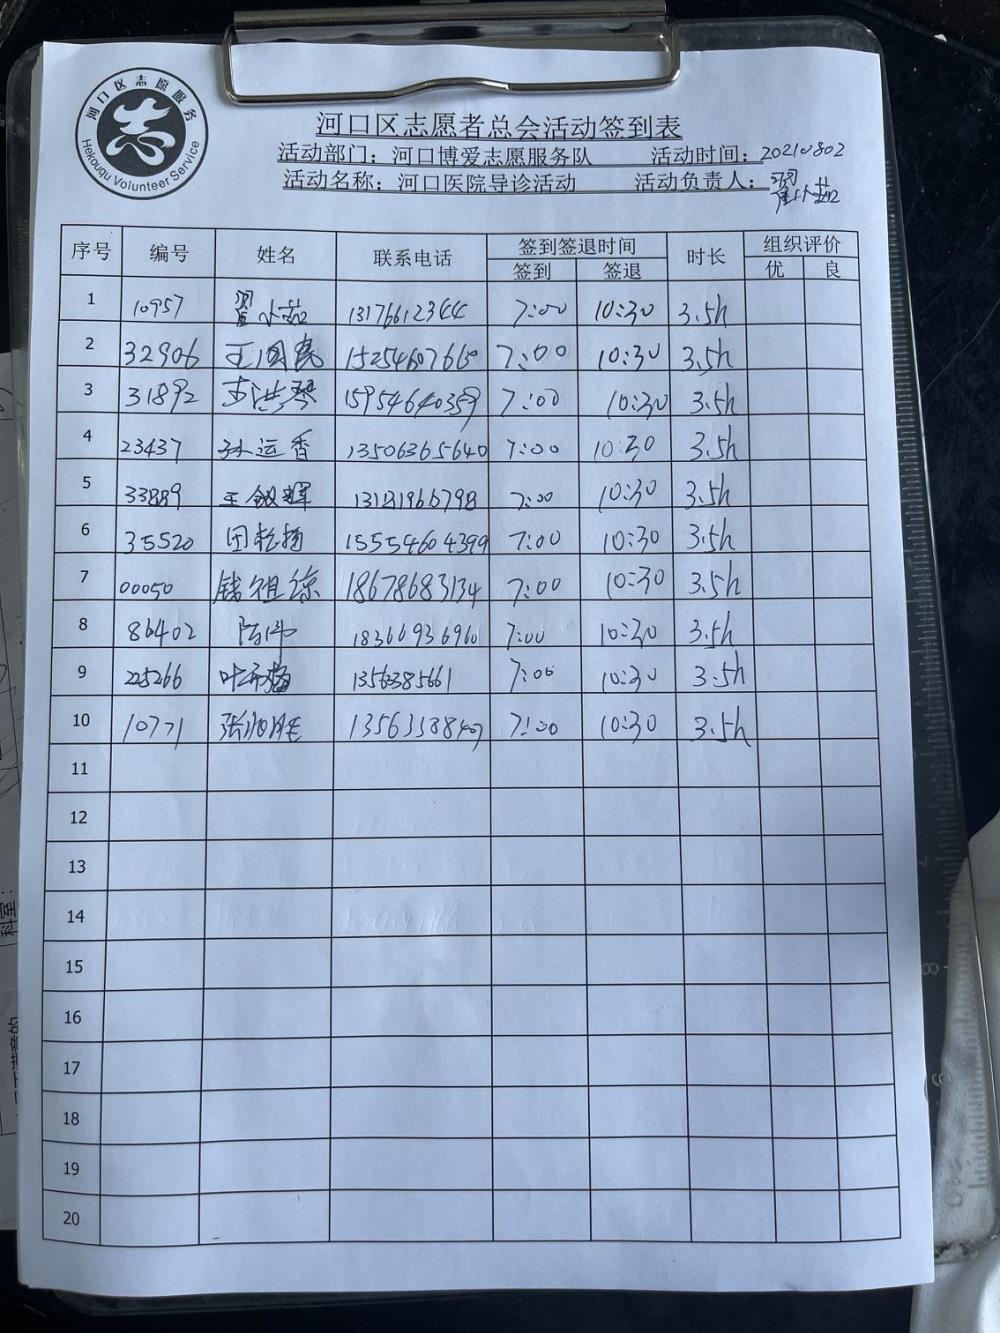 河口区志愿服务
Hekouqu Volunteer Service
河口区志愿者总会活动签到表
活动部门：河口博爱志愿服务队 活动时间：20210802
活动名称：河口医院导诊活动 活动负责人：翟小茹
序号 编号 姓名 联系电话 签到签退时间 时长 组织评价
签到 签退 优 良
1 10957 翟小茹 13176612344 7:00 10:30 3.5h
2 32906 王国亮 15254607660 7:00 10:30 3.5h
3 31892 李洪琴 15954640359 7:00 10:30 3.5h
4 23437 孙运香 13506365640 7:00 10:30 3.5h
5 33889 7:00 10:30 3.5h
6 35520 田乾扬 15554604399 7:00 10:30 3.5h
7 00050 钱祖综 18678683134 7:00 10:30 3.5h
8 86402 陈伟 18366936960 7:00 10:30 3.5h
9 225266 13563385661 7:00 10:30 3.5h
10 10771 7:00 10:30 3.5h
11
12
13
14
15
16
17
18
19
20
科室：